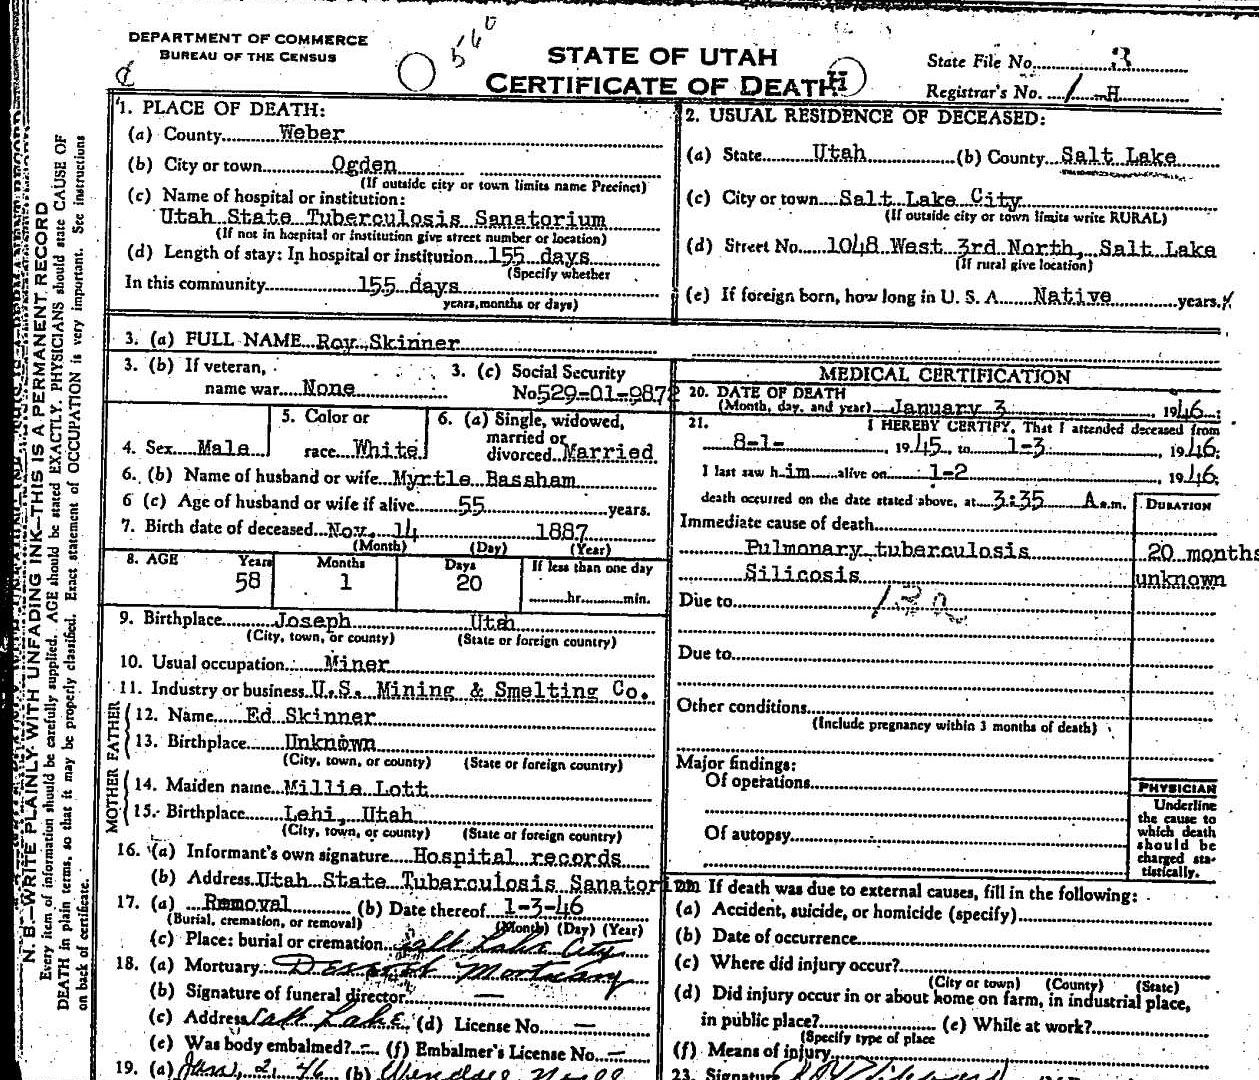 DEPARTMENT OF COMMERCE
BUREAU OF THE CENSUS
560
STATE OF UTAH
CERTIFICATE OF DEATH
H
State File No. 3
Registrar's No. 1 -H
1. PLACE OF DEATH:
(a) County Weber
(b) City or town Ogden
(If outside city or town limits name Precinct)
(c) Name of hospital or institution:
Utah State Tuberculosis Sanatorium
(If not in hospital or institution give street number or location)
(d) Length of stay: In hospital or institution 155 days
(Specify whether
In this community 155 days
years, months or days)
2. USUAL RESIDENCE OF DECEASED:
(a) State Utah (b) County Salt Lake
(c) City or town Salt Lake City
(If outside city or town limits write RURAL)
(d) Street No. 1048 West 3rd North, Salt Lake
(If rural give location)
(e) If foreign born, how long in U. S. A. Native years.
3. (a) FULL NAME Roy Skinner
3. (b) If veteran,
name war None
3. (c) Social Security
No. 529-01-9872
4. Sex Male
5. Color or
race White
6. (a) Single, widowed,
married or
divorced Married
6. (b) Name of husband or wife Myrtle Bassham
6 (c) Age of husband or wife if alive 55 years.
7. Birth date of deceased Nov. 14 1887
(Month) (Day) (Year)
8. AGE Years Months Days If less than one day
58 1 20 hr. min.
9. Birthplace Joseph Utah
(City, town, or county) (State or foreign country)
10. Usual occupation Miner
11. Industry or business U.S. Mining & Smelting Co.
FATHER
12. Name Ed Skinner
13. Birthplace Unknown
(City, town, or county) (State or foreign country)
MOTHER
14. Maiden name Millie Lott
15. Birthplace Lehi, Utah
(City, town, or county) (State or foreign country)
16. (a) Informant's own signature Hospital records
(b) Address Utah State Tuberculosis Sanatorium
17. (a) Removal (b) Date thereof 1-3-46
(Burial, cremation, or removal) (Month) (Day) (Year)
(c) Place: burial or cremation Salt Lake City
18. (a) Mortuary Deseret Mortuary
(b) Signature of funeral director —
(c) Address Salt Lake (d) License No. —
(e) Was body embalmed? — (f) Embalmer's License No. —
19. (a) Jan, 2, 46 (b)
MEDICAL CERTIFICATION
20. DATE OF DEATH
(Month, day, and year) January 3 1946
21. I HEREBY CERTIFY, That I attended deceased from
8-1- 1945 to 1-3 1946;
I last saw him alive on 1-2 1946;
death occurred on the date stated above, at 3:35 A.m.
DURATION
Immediate cause of death
Pulmonary tuberculosis 20 months
Silicosis unknown
Due to
Due to
Other conditions
(Include pregnancy within 3 months of death)
Major findings:
Of operations
Of autopsy
PHYSICIAN
Underline
the cause to
which death
should be
charged sta-
tistically.
If death was due to external causes, fill in the following:
(a) Accident, suicide, or homicide (specify)
(b) Date of occurrence
(c) Where did injury occur?
(City or town) (County) (State)
(d) Did injury occur in or about home on farm, in industrial place,
in public place? (e) While at work?
(Specify type of place
(f) Means of injury
23. Signature
N. B.—WRITE PLAINLY WITH UNFADING INK—THIS IS A PERMANENT RECORD
Every item of information should be carefully supplied. AGE should be stated EXACTLY. PHYSICIANS should state CAUSE OF
DEATH in plain terms, so that it may be properly classified. Exact statement of OCCUPATION is very important. See instructions
on back of certificate.